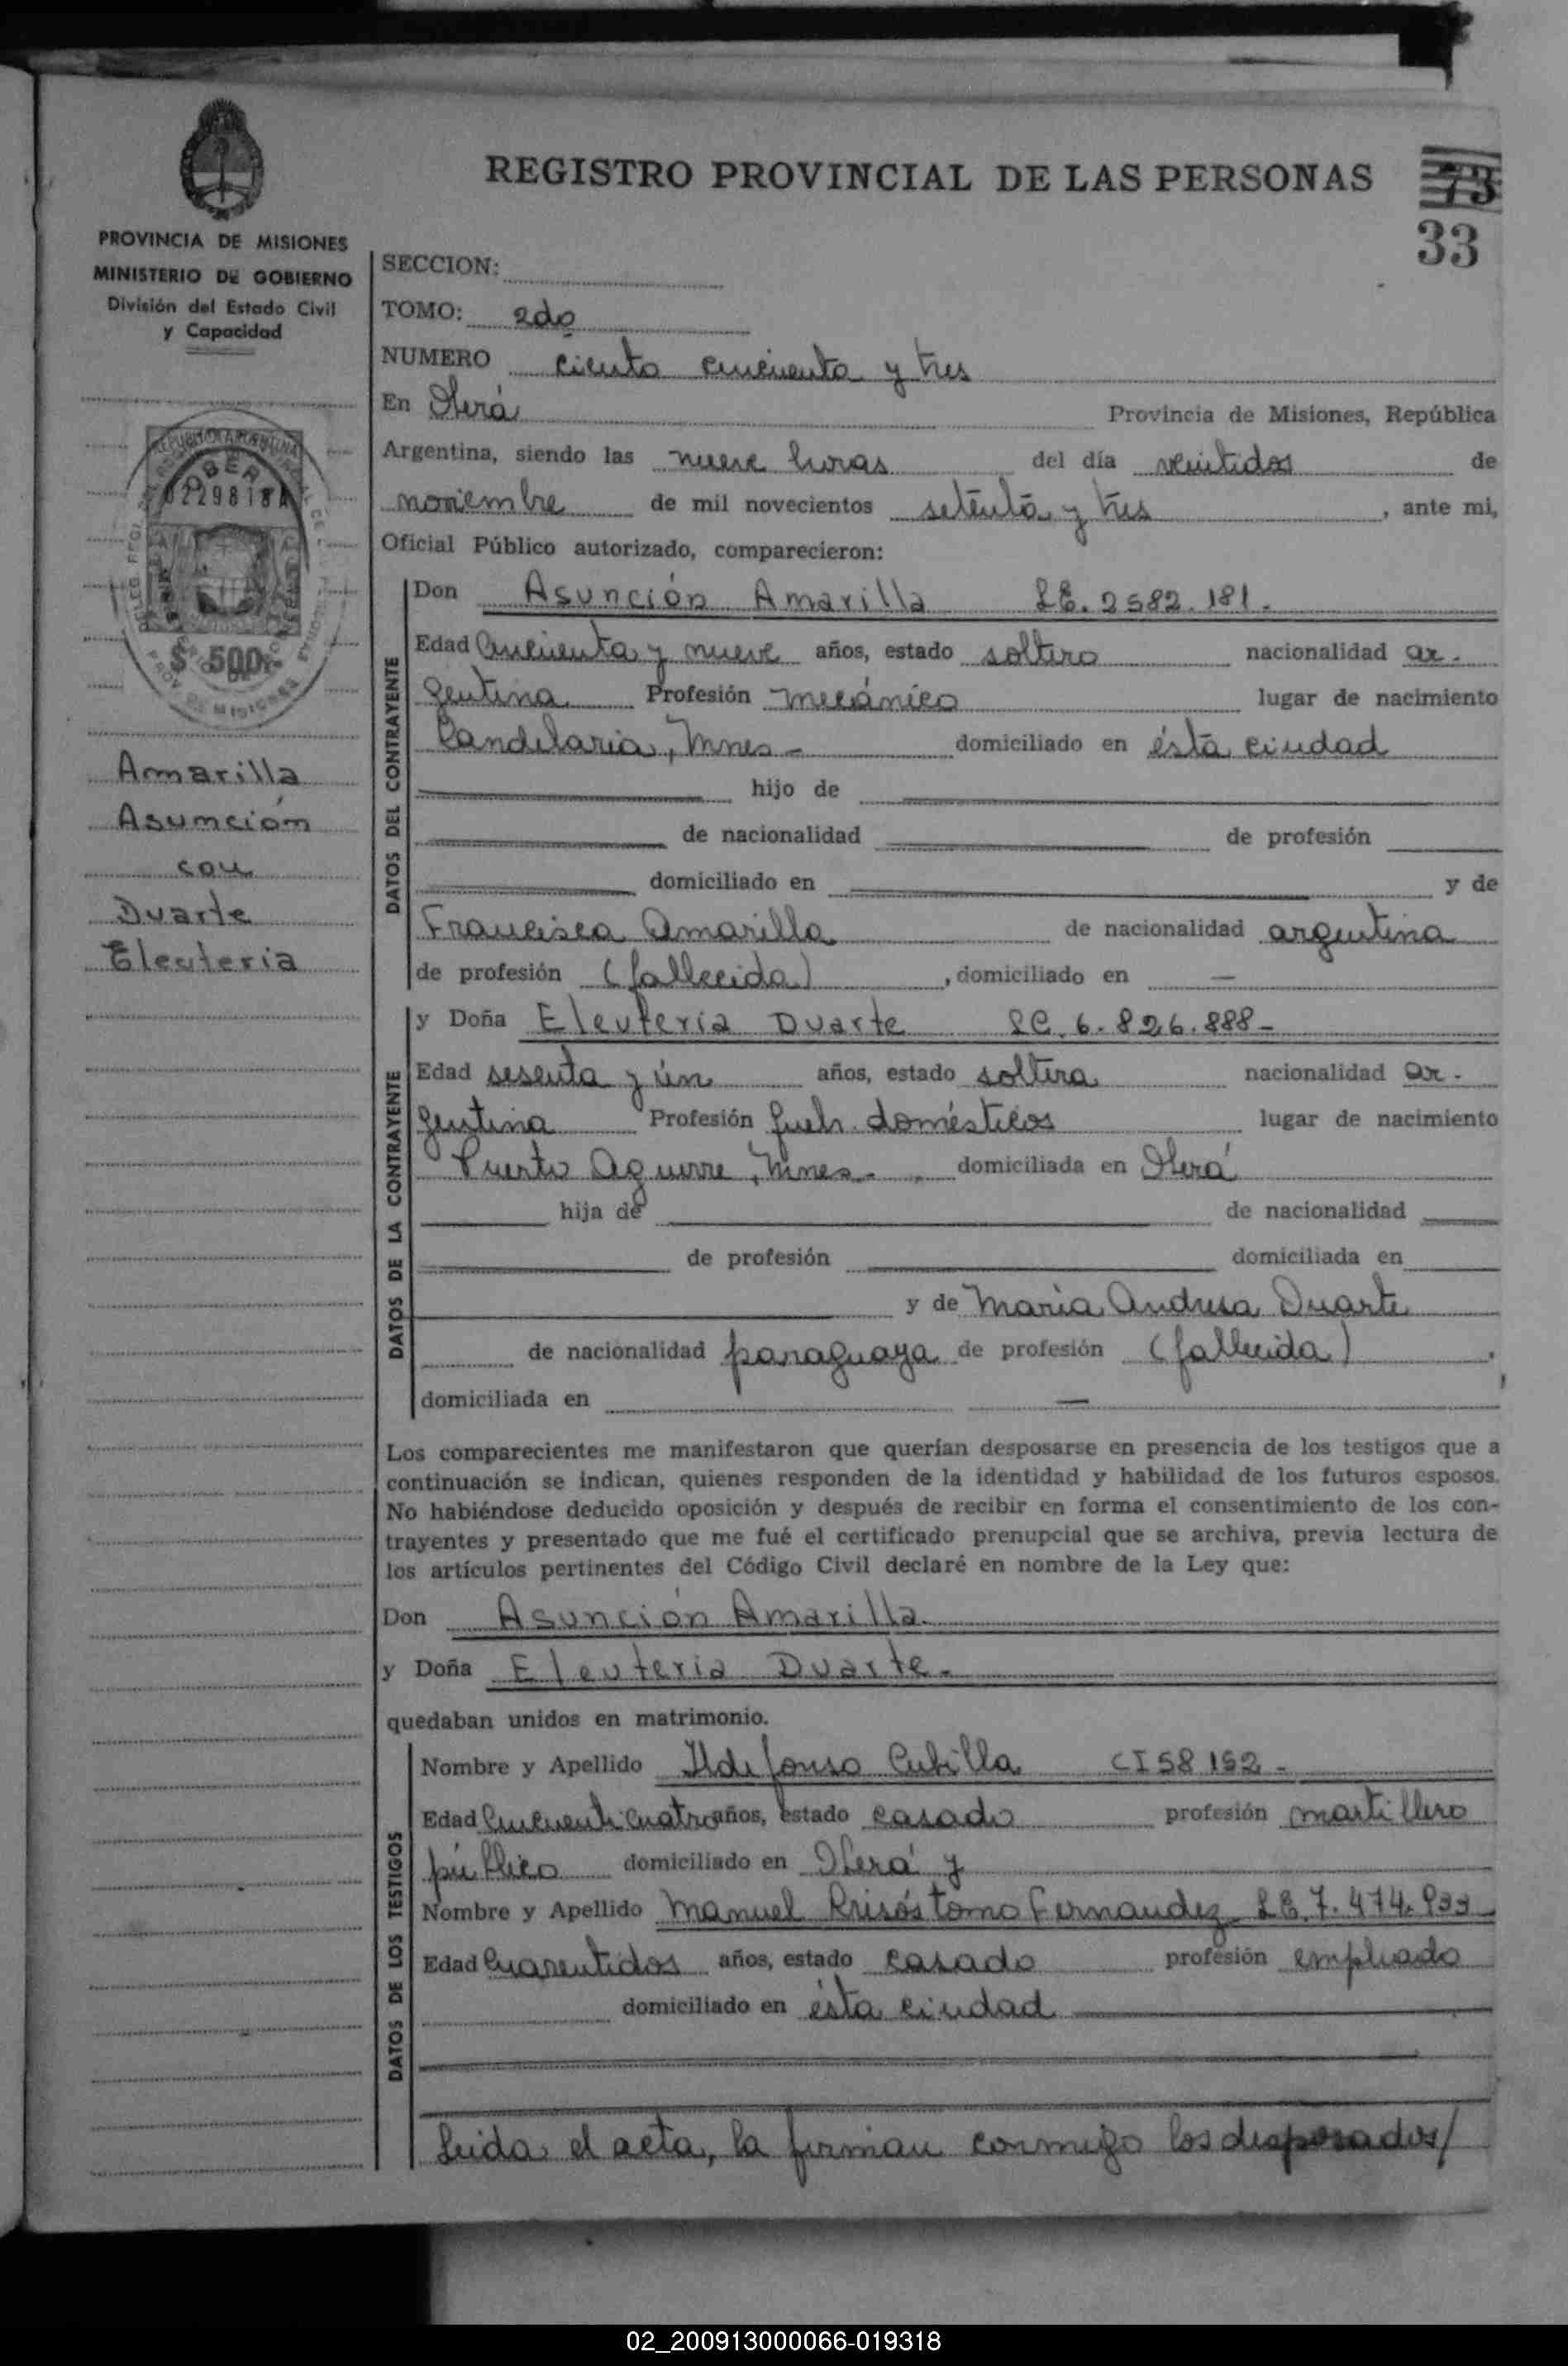 REGISTRO PROVINCIAL DE LAS PERSONAS
73
33
PROVINCIA DE MISIONES
MINISTERIO DE GOBIERNO
División del Estado Civil
y Capacidad
SECCION:
TOMO: 2do
NUMERO ciento cincuenta y tres
En Oberá Provincia de Misiones, República
Argentina, siendo las nueve horas del día veintidos de
noviembre de mil novecientos setenta y tres, ante mi,
Oficial Público autorizado, comparecieron:
REPUBLICA ARGENTINA
OBERA
02298184
$ 500.-
PROV. DE MISIONES
Amarilla
Asunción
con
Duarte
Eleuteria
DATOS DEL CONTRAYENTE
Don Asunción Amarilla LE. 2582.181.
Edad Cincuenta y nueve años, estado soltero nacionalidad ar-
gentina Profesión mecánico lugar de nacimiento
Candelaria, Mnes- domiciliado en ésta ciudad
hijo de
de nacionalidad de profesión
domiciliado en y de
Francisca Amarilla de nacionalidad argentina
de profesión (fallecida), domiciliado en —
DATOS DE LA CONTRAYENTE
y Doña Eleuteria Duarte LC. 6.826.888-
Edad sesenta y ún años, estado soltera nacionalidad ar-
gentina Profesión queh. domésticos lugar de nacimiento
Puerto Aguirre, Mnes-. domiciliada en Oberá
hija de de nacionalidad
de profesión domiciliada en
y de María Andresa Duarte
de nacionalidad paraguaya de profesión (fallecida),
domiciliada en —
Los comparecientes me manifestaron que querían desposarse en presencia de los testigos que a
continuación se indican, quienes responden de la identidad y habilidad de los futuros esposos.
No habiéndose deducido oposición y después de recibir en forma el consentimiento de los con-
trayentes y presentado que me fué el certificado prenupcial que se archiva, previa lectura de
los artículos pertinentes del Código Civil declaré en nombre de la Ley que:
Don Asunción Amarilla.
y Doña Eleuteria Duarte.
quedaban unidos en matrimonio.
DATOS DE LOS TESTIGOS
Nombre y Apellido Ildefonso Cubilla CI 58152-
Edad Cincuenticuatro años, estado casado profesión martillero
público domiciliado en Oberá y
Nombre y Apellido Manuel Crisóstomo Fernandez LE. 7.474.933
Edad Cuarentidos años, estado casado profesión empleado
domiciliado en ésta ciudad
Leida el acta, la firman conmigo los desposados/
02_200913000066-019318